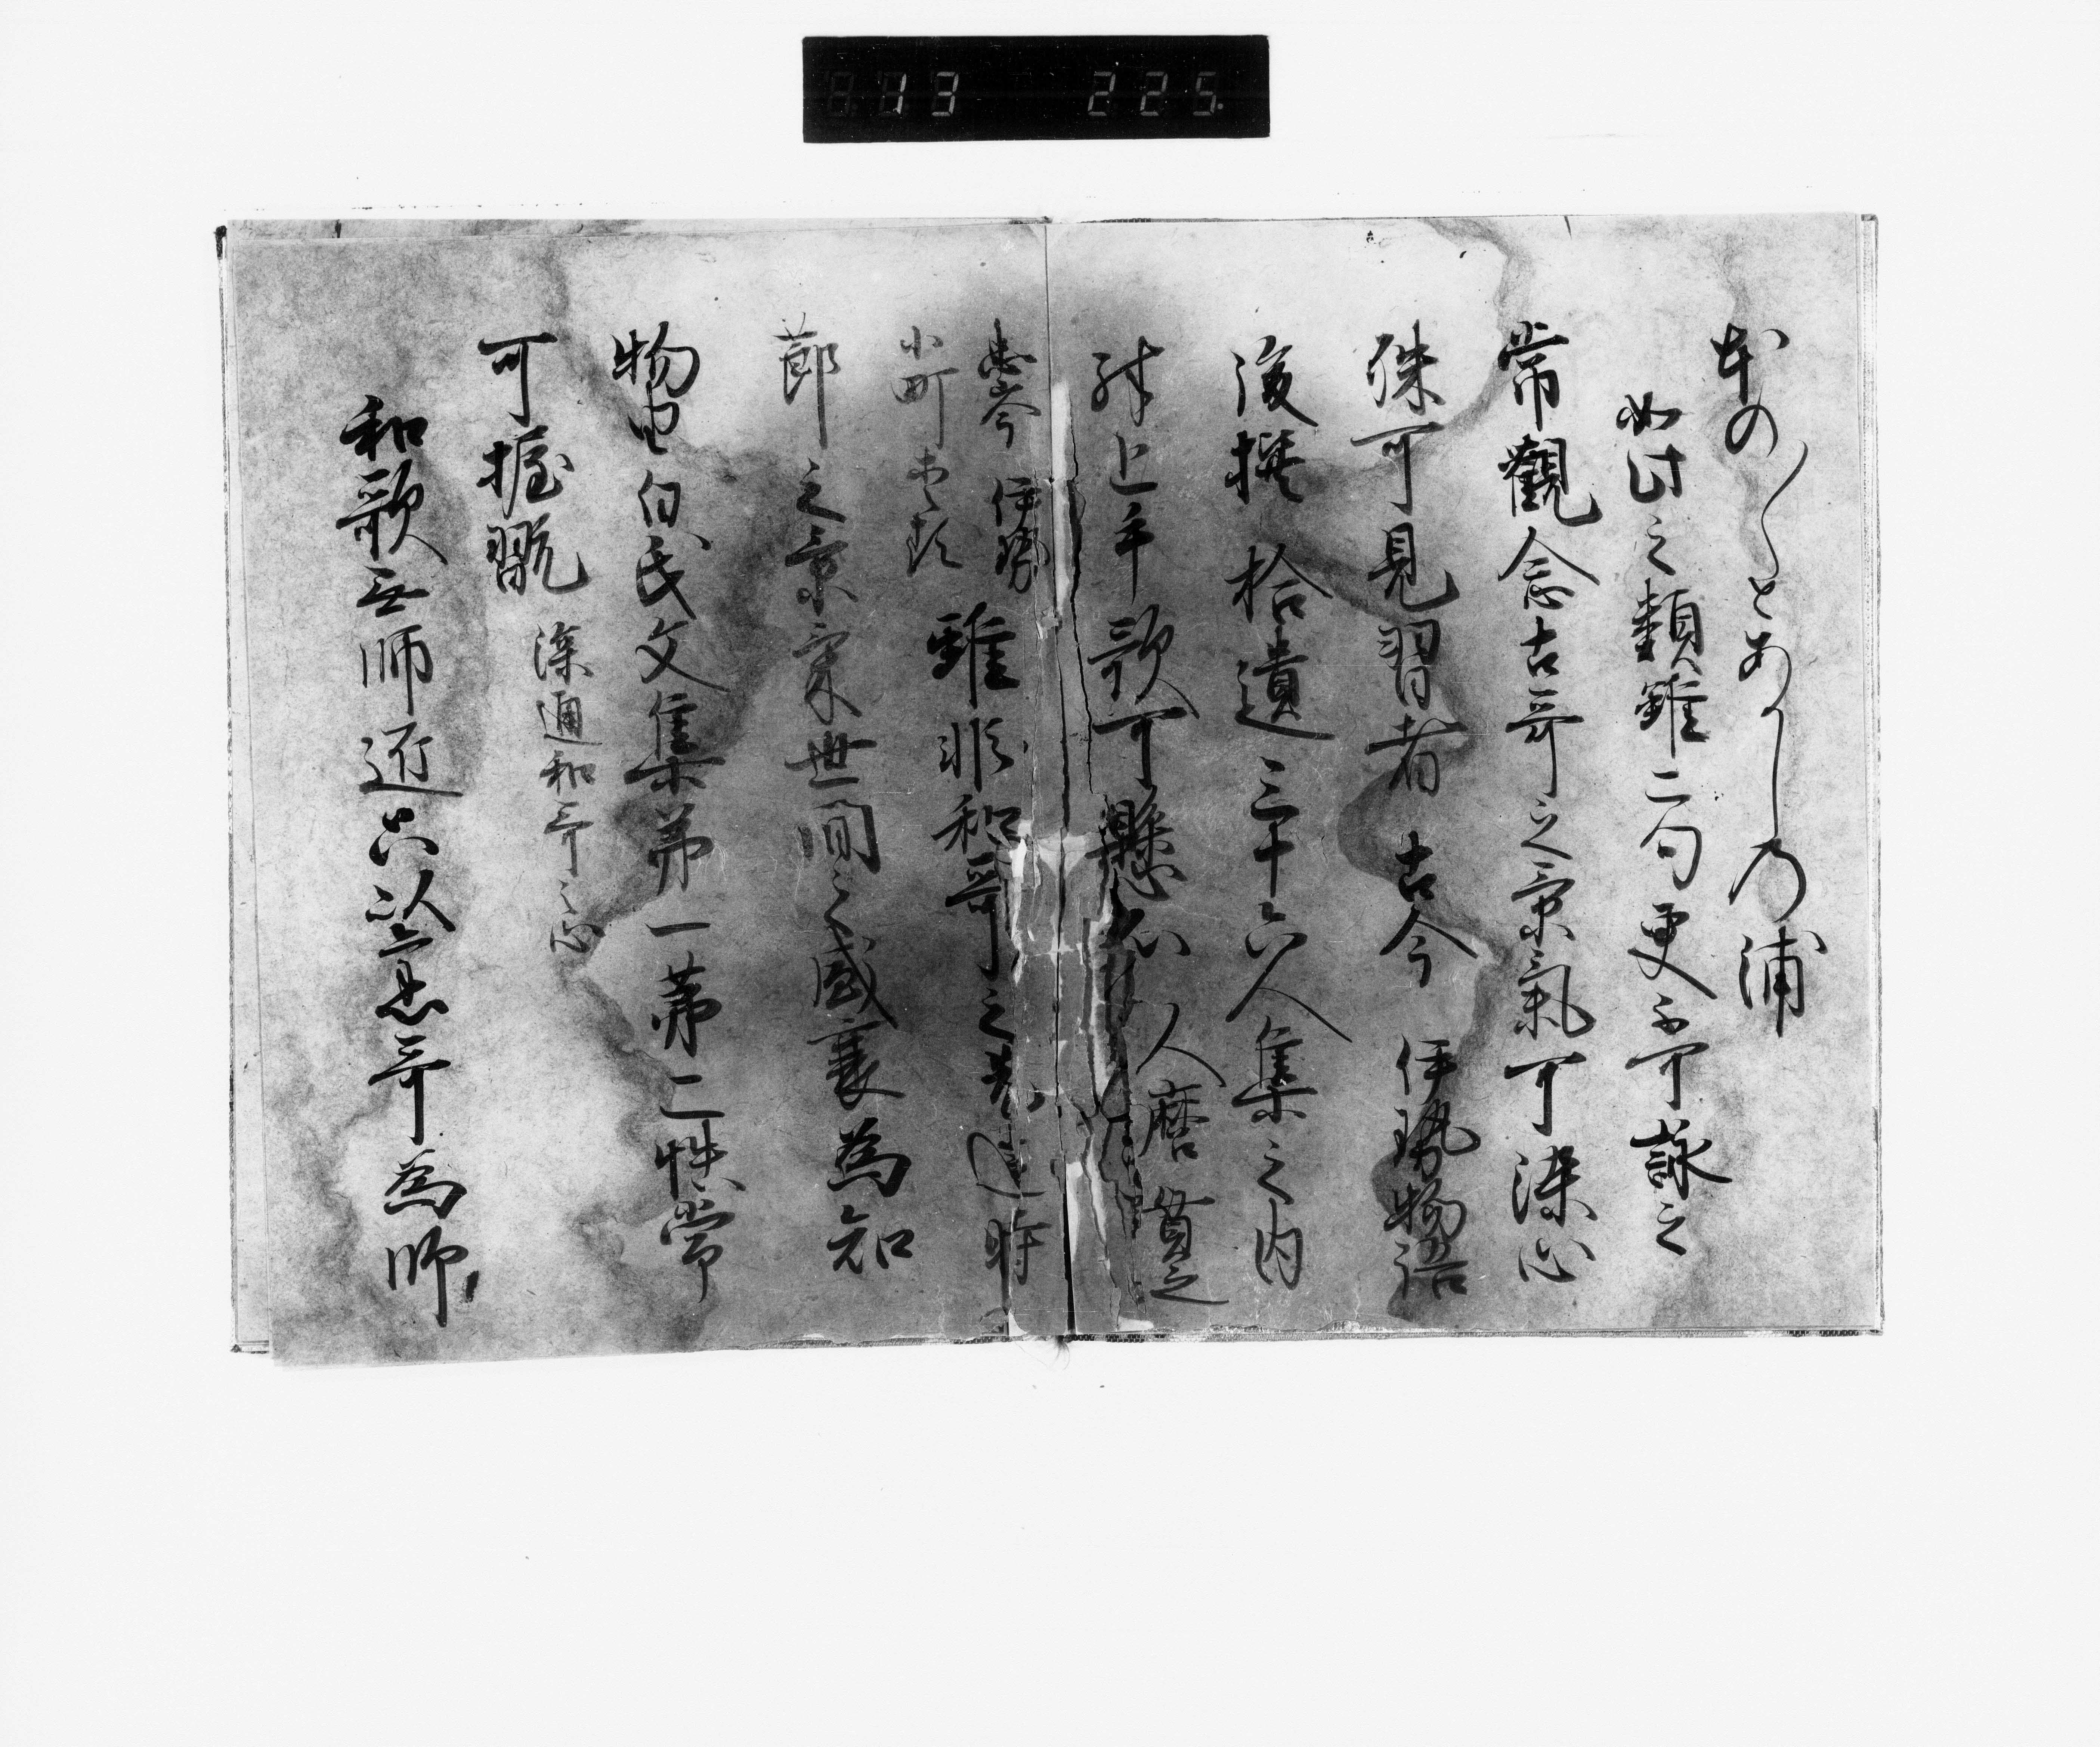 13 225
ほの〱とあかしの浦
如此之類雖二句更不可詠之
常觀念古哥之景氣可染心
殊可見習者古今伊勢物語
後撰拾遺三十六人集之内
殊上手歌可懸心 人麿 貫之
忠岑 伊勢
小町等類
雖非和哥之先達時
節之景氣世間之盛衰為知
物由白氏文集第一第二帙常
可握翫 深通和哥之心
和歌無師迹只以舊哥為師